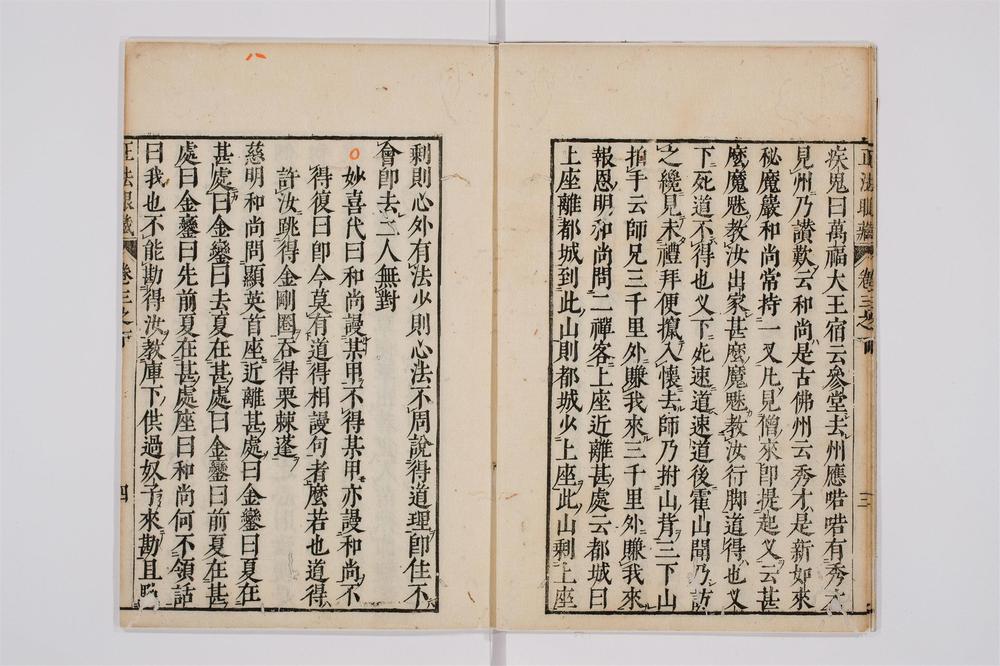 正法眼藏 卷三之下 三
疾鬼曰萬福大王宿云參堂去州應喏喏有秀才
見州乃讃歎云和尚是古佛州云秀才是新如來
秘魔嚴和尚常持一叉凡見僧來卽提起叉云甚
麼魔魅教汝出家甚麼魔魅教汝行脚道得也叉
下死道不得也叉下死速道速道後霍山聞乃訪
之纔見未禮拜便攛入懷去師乃拊山背三下山
拍手云師兄三千里外賺我來三千里外賺我來
報恩明和尚問二禪客上座近離甚處云都城曰
上座離都城到此山則都城少上座此山剩上座
剩則心外有法少則心法不周說得道理卽住不
會卽去二人無對
妙喜代曰和尚謾某甲不得某甲亦謾和尚不
得復曰卽今莫有道得相謾句者麼若也道得
許汝跳得金剛圈吞得栗棘蓬
慈明和尚問顯英首座近離甚處曰金鑾曰夏在
甚處曰金鑾曰去夏在甚處曰金鑾曰前夏在甚
處曰金鑾曰先前夏在甚處座曰和尚何不領話
曰我也不能勘得汝教庫下供過奴子來勘且點
正法眼藏 卷三之下 四